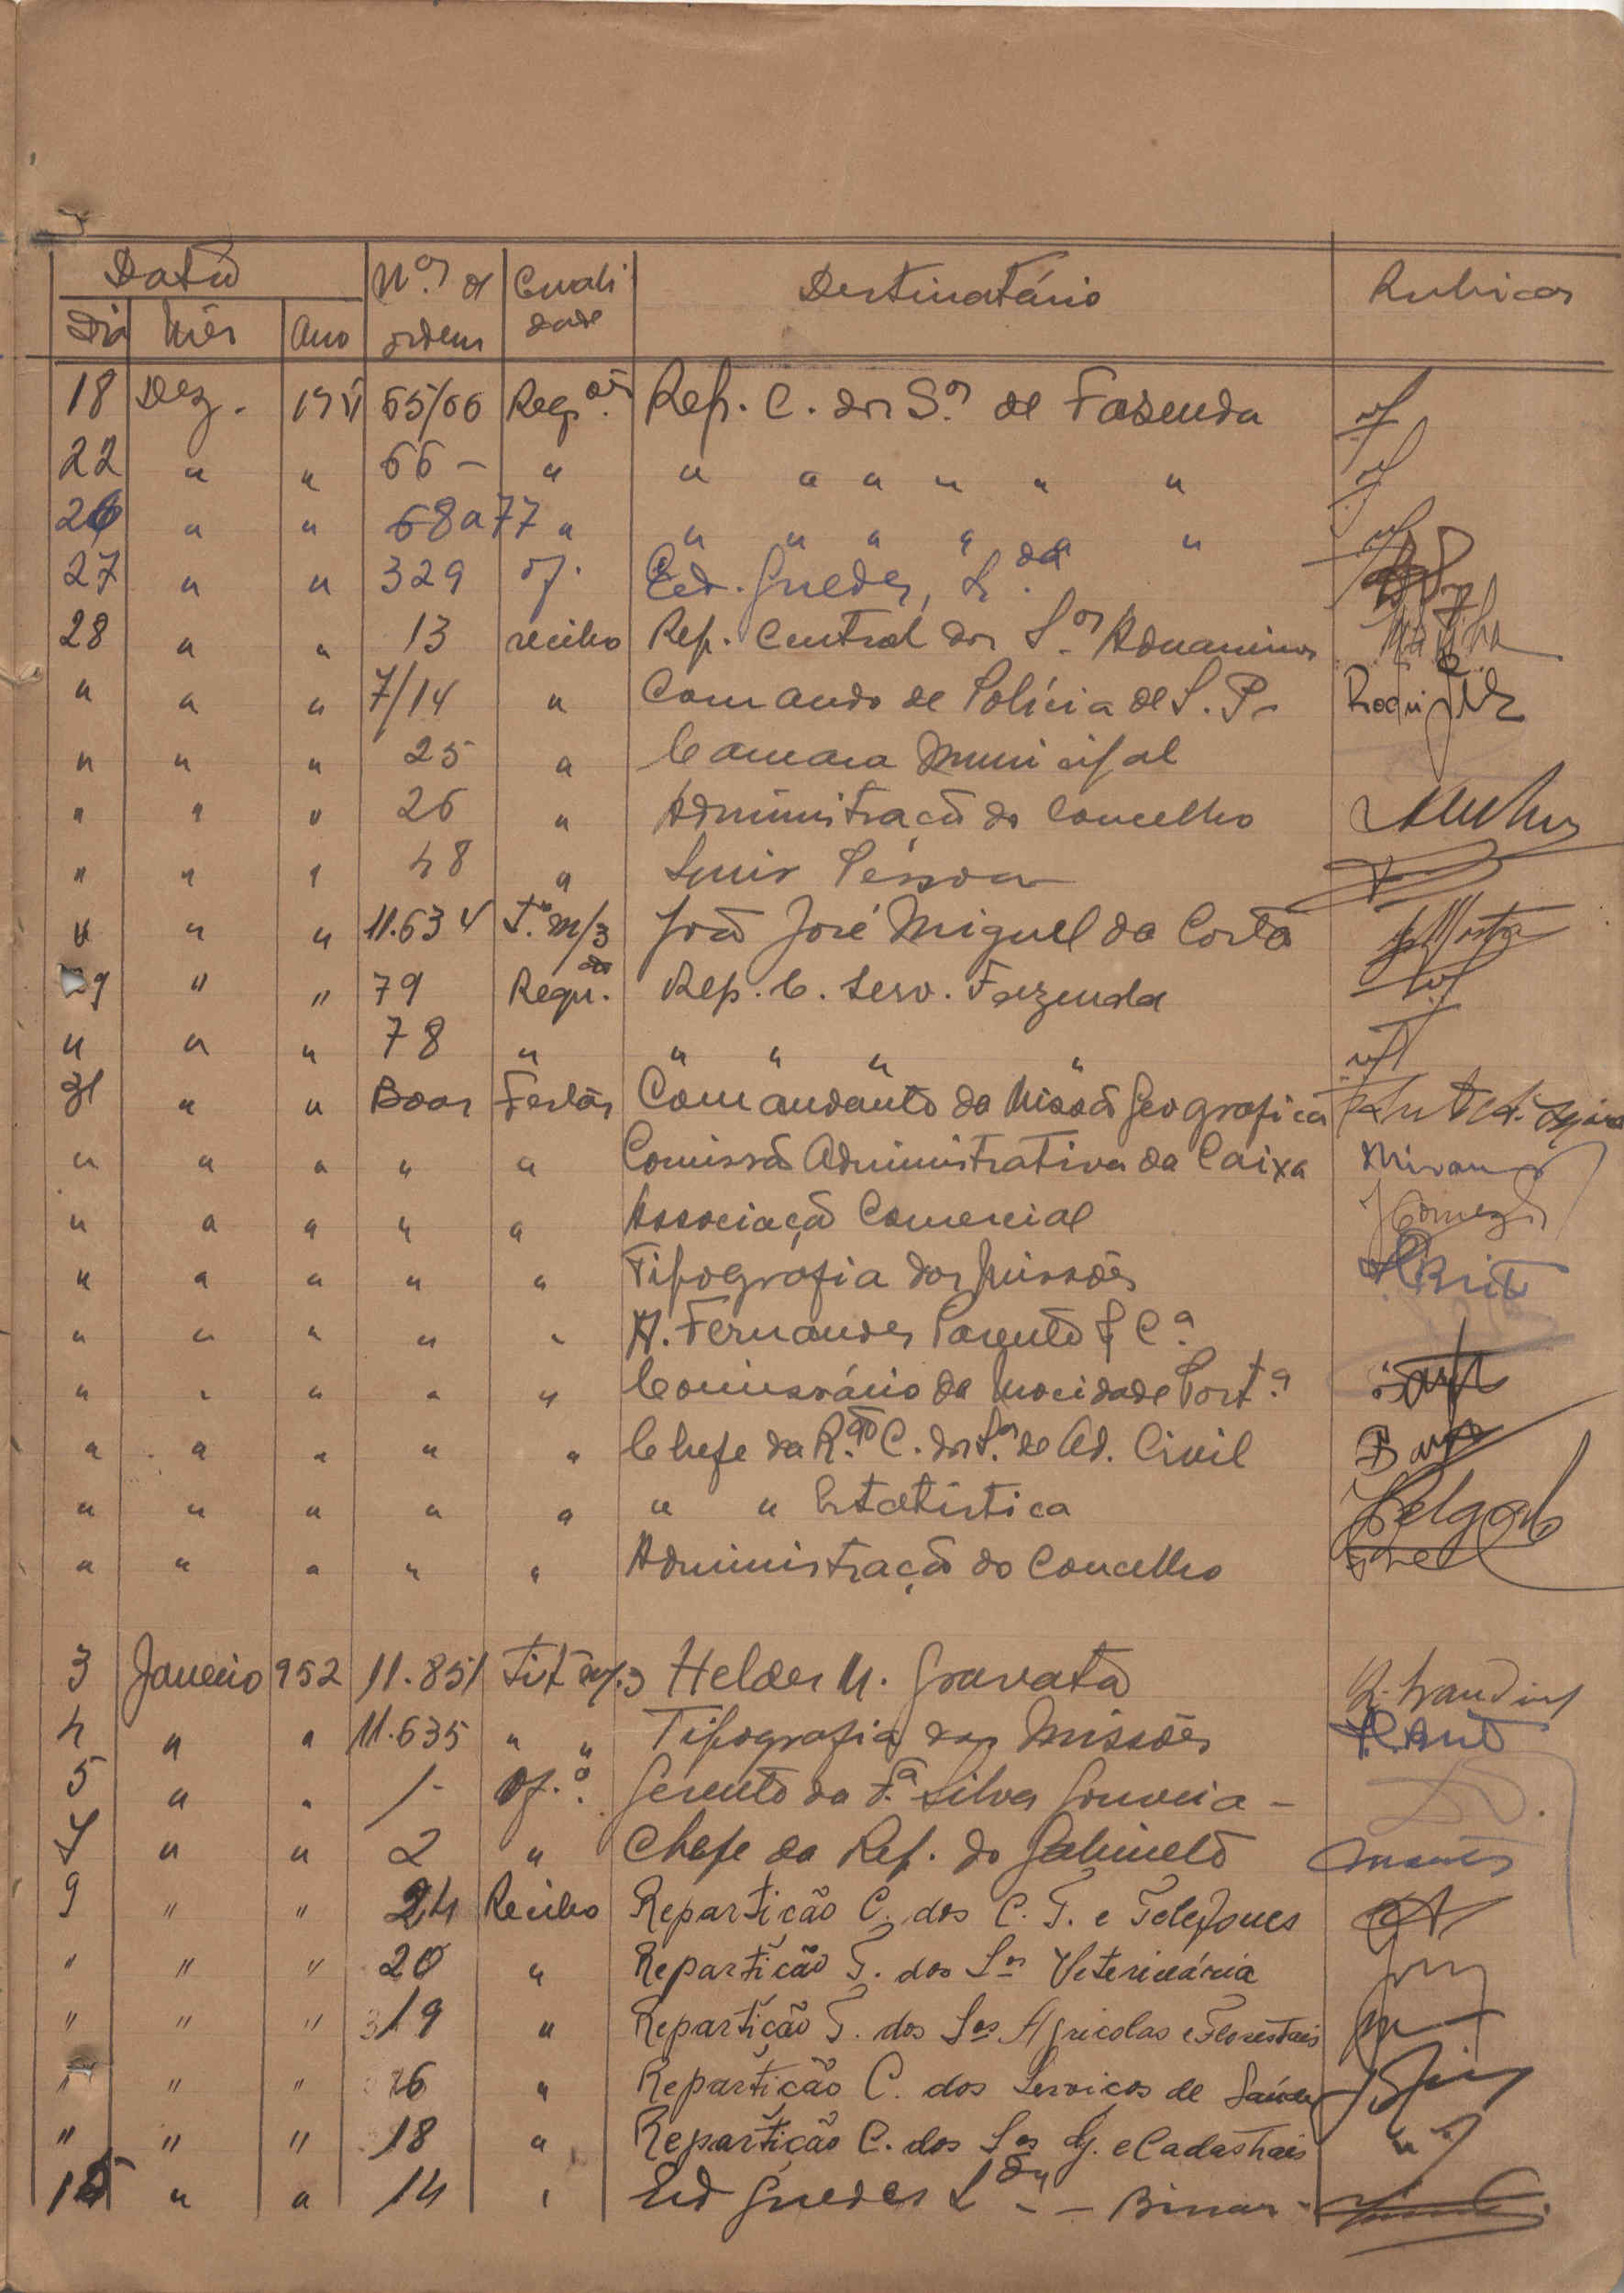 Data Nos de Cuali Destinatário Rubicas
Dia Mês Ano ordem dade
18 Dez. 1951 65/66 Reqões. Rep. C. dos Sos de Fazenda
22 " " 66 - " " " " " " "
26 " " 68 a 77 " " " " " " "
27 " " 329 of. Ed. Guedes, Lda.
28 " " 13 recibo Rep. Central dos Sos Aduaneiros
" " " 7/14 " Comando de Polícia de S. P. Rodrigues
" " " 25 " Camara Municipal
" " " 26 " Administração do Concelho
" " " 48 " Luis Péssoa
" " " 11.634 T. m/3 João José Miguel da Costa
29 " " 79 Requ. Rep. C. Serv. Fazenda
" " " 78 " " " " "
31 " " Boas Festas Comandante da Missão Geografica
" " " " " Comissão Administrativa da Caixa
" " " " " Associação Comercial
" " " " " Tipografia das Missões
" " " " " A. Fernandes Parente & Ca.
" " " " " Comissário da Mocidade Porta.
" " " " " Chefe da Rão. C. dos Sos. de Ad. Civil
" " " " " " " Estatística
" " " " " Administração do Concelho
3 Janeiro 952 11.851 Tit m/3 Helder M. Gravata
4 " " 11.635 " " Tipografia das Missões
5 " " 1 - Of.o Gerente da Fa. Silva Gouveia -
7 " " 2 " Chefe da Rep. do Gabinete
9 " " 24 Recibo Repartição C. dos C. T. e Telefones
" " " 20 " Repartição T. dos Sos Veterinária
" " " 19 " Repartição T. dos Sos Agricolas e Florestais
" " " 16 " Repartição C. dos Serviços de Saúde
" " " 18 " Repartição C. dos Sos G. e Cadastrais
" " 14 " Ed Guedes Lda - - Bissau -